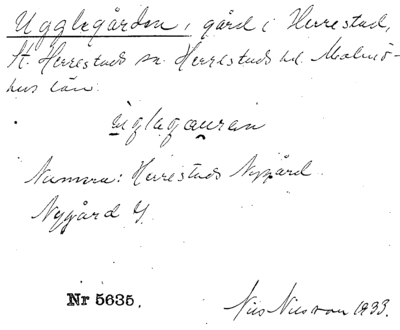 Ugglegården, gård i Herrestad,
St. Herrestads sn. Herrestads hd. Malmö-
hus län.
uglagauren
Numera: Herrestads Nygård.
Nygård Y.
Nr 5635.
Nils Nilsson 1933.